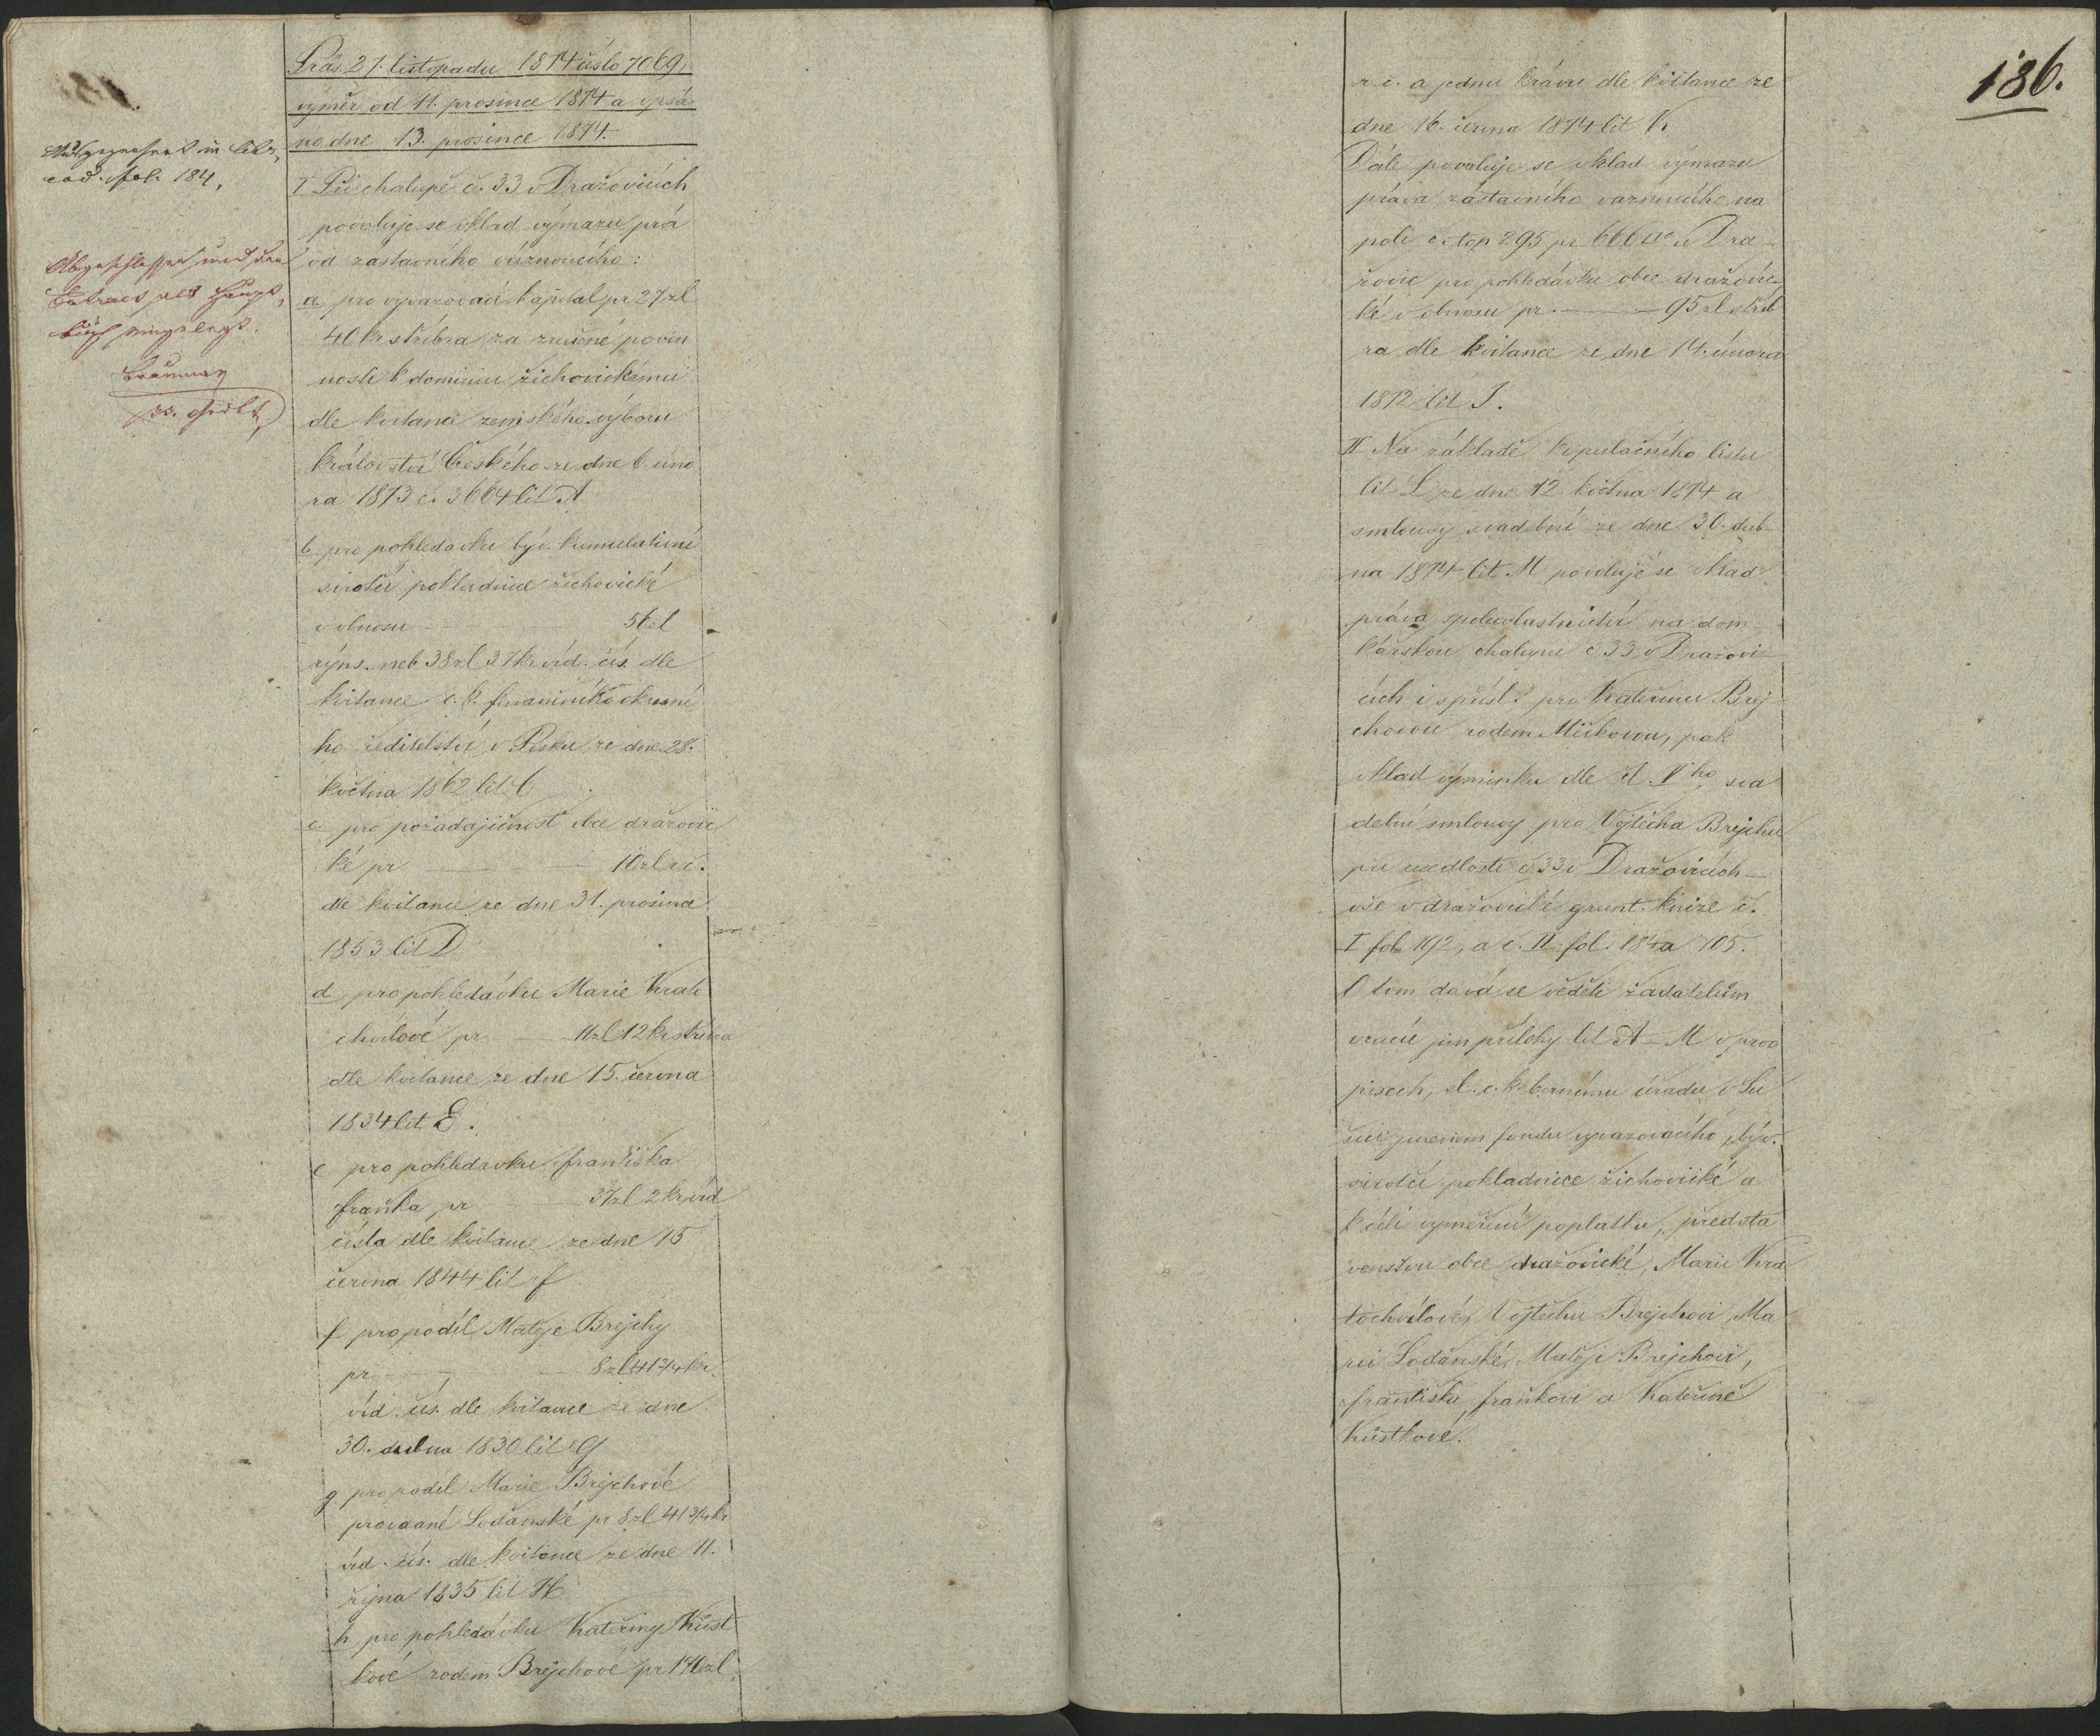 Präs. 27. listopadu 1874 číslo 7069,
výměr od 11. prosince 1874 a vpsá
no dne 13. prosince 1874.
fol. 184,
I Při chalupě č. 33 v Dražovicích
povoluje se vklad výmazu prá
va zástavního váznoucího:
a pro vyvazovací kapitál pr 27 zl
40 kr stříbra za zrušené povin
nosti k dominiu žichovickému
dle kvitance zemského výboru
království Českého ze dne 6. úno
ra 1873 č. 3664 lit A
b pro pohledávku býv. kumulativní
sirotčí pokladnice žichovické
v obnosu 56 zl
rýns. neb 38 zl 37 kr víd. čís. dle
kvitance c. k. finančního okresní
ho ředitelství v Písku ze dne 28.
května 1862 lit C
c. pro požadajícnost obce dražovic
ké pr 10 zl r. č.
dle kvitance ze dne 31. prosince
1853 lit D
d pro pohledávku Marie Krato
chvilové pr 11 zl 12 kr stříbra
dle kvitance ze dne 15. června
1834 lit E.
e pro pohledávku Františka
Fraňka pr 37 zl 2 kr víd
čísla dle kvitance ze dne 15
června 1844 lit f
f pro podíl Matěje Brejchy
pr 8 zl 41 3/4 kr.
víd. čís. dle kvitance ze dne
30. dubna 1830 lit G
g pro podíl Marie Brejchové
provdané Lodanské pr 8 zl 41 3/4 kr
víd. čís. dle kvitance ze dne 11.
října 1835 lit H
h pro pohledávku Kateřiny Kůst
kové rodem Brejchové pr 140 zl
186.
r. č. a jednu krávu dle kvitance ze
dne 16. června 1874 lit K
Dále povoluje se vklad výmazu
práva zástavního váznoucího na
poli č. top 295 pr 666 □° u Dra-
žovic pro pohledávku obce dražovic-
ké v obnosu pr. 95 zl stříb
ra dle kvitance ze dne 14. února
1872 lit J.
II Na základě kopulačního listu
lit L ze dne 12. května 1874 a
smlouvy svadební ze dne 30. dub-
na 1874 lit M povoluje se vklad
práva spoluvlastnictví na dom-
kářskou chalupu č 33 v Dražovi-
cích i s přísl. pro Kateřinu Brej-
chovou rodem Mickovou, pak
vklad výminku dle čl. Vho sva
dební smlouvy pro Vojtěcha Brejchu
při usedlosti č 33 v Dražovicích —
vše v dražovické grunt. knize č.
I fol 192, a č. II fol. 184 a 705.
O tom dává se věděti žadatelům
vracíc jim přílohy lit A – M v prvo
pisech, sl. c. k. bernímu úřadu v Su
šici jmenem fondu vyvazovacího, býv.
sirotčí pokladnice žichovické a
k cíli vyměření poplatku, předsta
venstvu obce dražovické, Marii Kra
tochvílové, Vojtěchu Brejchovi, Ma
rii Lodanské, Matěji Brejchovi,
Františku Fraňkovi a Kateřině
Kůstkové.